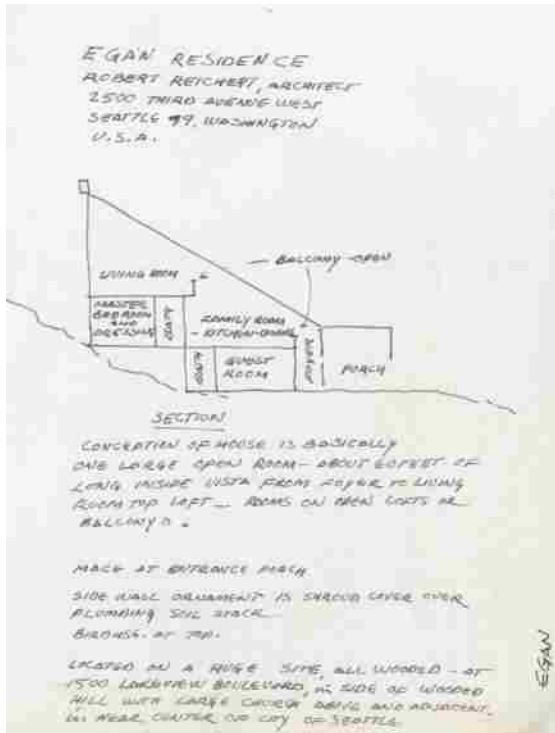 EGAN RESIDENCE
ROBERT REICHERT, ARCHITECT
2500 THIRD AVENUE WEST
SEATTLE 99, WASHINGTON
U.S.A.
LIVING ROOM
BALCONY - OPEN
MASTER
BEDROOM
AND
DRESSING
BATH
FAMILY ROOM
- KITCHEN - DINING
BATH
GUEST
ROOM
FOYER
PORCH
SECTION
CONCEPTION OF HOUSE IS BASICALLY
ONE LARGE OPEN ROOM - ABOUT 60 FEET OF
LONG INSIDE VISTA FROM FOYER TO LIVING
ROOM TOP LEFT - ROOMS ON OPEN LOFTS OR
BALCONYS.
MASK AT ENTRANCE PORCH
SIDE WALL ORNAMENT IS SHROUD COVER OVER
PLUMBING SOIL STACK
AT TOP.
LOCATED ON A HUGE SITE, ALL WOODED - AT
1500 LAKEVIEW BOULEVARD, SIDE OF WOODED
HILL WITH LARGE CHURCH ABOVE AND ADJACENT,
NEAR CENTER OF CITY OF SEATTLE
EGAN